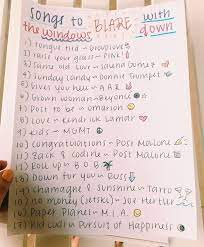 Songs to BLARE with
the windows down
1) tongue tied ~ Grouplove
2) raise your glass ~ P!nk
3) same old love ~ Selena Gomez
4) sunday candy ~ Donnie Trumpet
5) gives you hell ~ A.A.R.
6) grown woman ~ Beyoncé
7) post to be ~ omarion
8) love ~ Kendrick Lamar
9) kids ~ MGMT
10) congratulations ~ Post Malone
11) zack & codeine ~ Post Malone
12) Roll up ~ B.O.B
13) Down for you ~ Russ
14) champagne & sunshine ~ Tarro
15) no money (remix) ~
16) Paper Planes ~ M.I.A.
17) Kid Cudi ~ Pursuit of Happiness